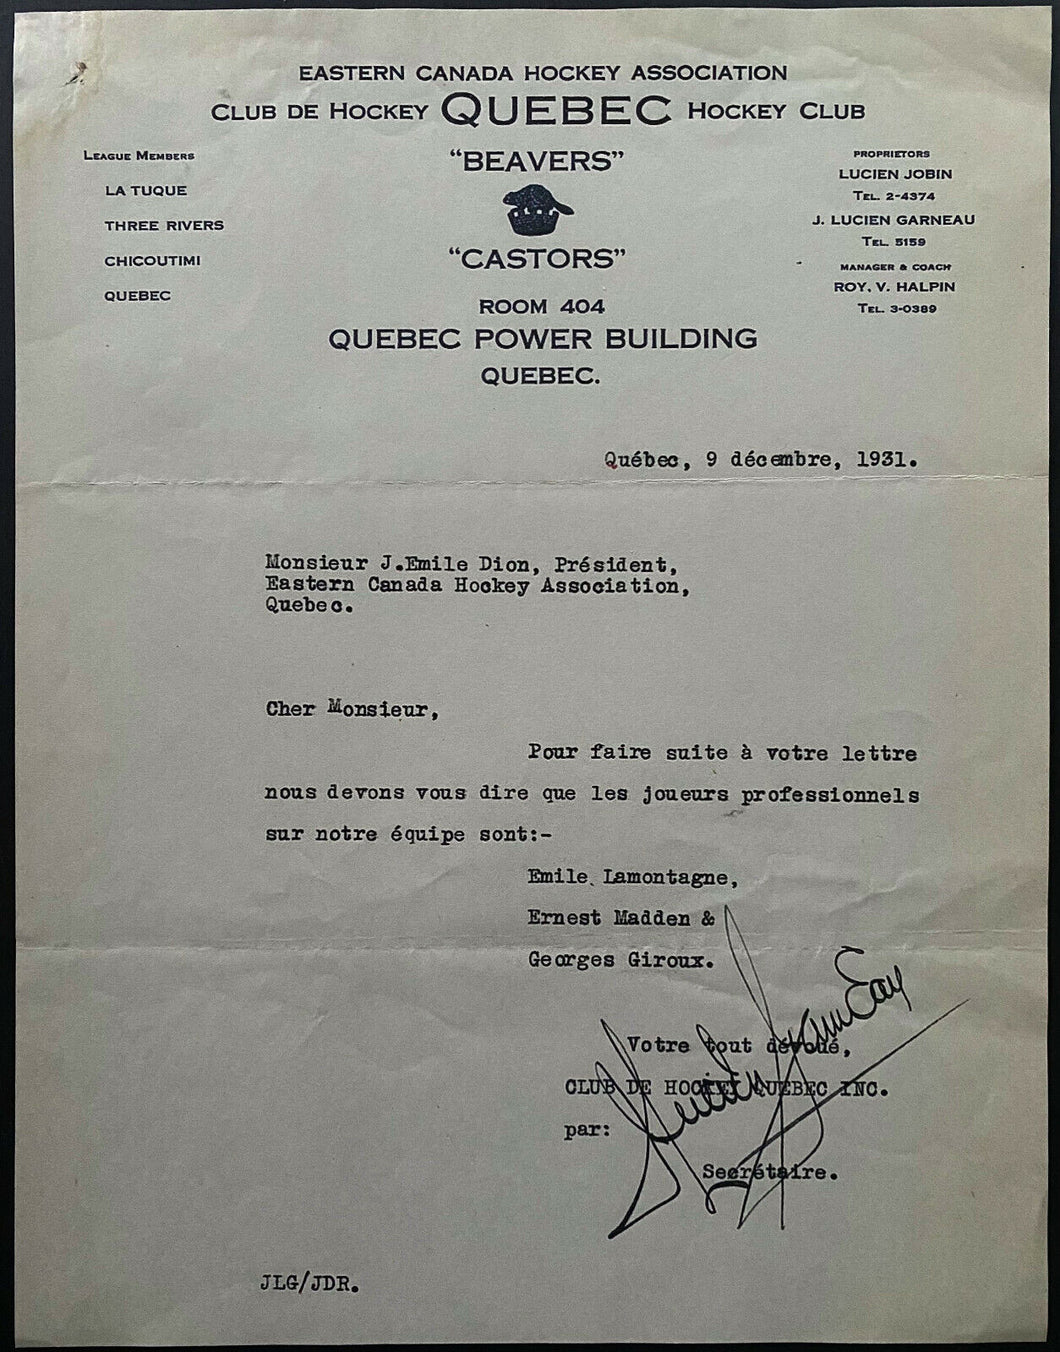 EASTERN CANADA HOCKEY ASSOCIATION
CLUB DE HOCKEY QUEBEC HOCKEY CLUB
LEAGUE MEMBERS
LA TUQUE
THREE RIVERS
CHICOUTIMI
QUEBEC
"BEAVERS"
"CASTORS"
ROOM 404
QUEBEC POWER BUILDING
QUEBEC.
PROPRIETORS
LUCIEN JOBIN
TEL. 2-4374
J. LUCIEN GARNEAU
TEL. 5159
MANAGER & COACH
ROY. V. HALPIN
TEL. 3-0389
Québec, 9 décembre, 1931.
Monsieur J.Emile Dion, Président,
Eastern Canada Hockey Association,
Quebec.
Cher Monsieur,
Pour faire suite à votre lettre
nous devons vous dire que les joueurs professionnels
sur notre équipe sont:-
Emile Lamontagne,
Ernest Madden &
Georges Giroux.
Votre tout dévoué,
CLUB DE HOCKEY QUEBEC INC.
par:
J Lucien Garneau
Secrétaire.
JLG/JDR.